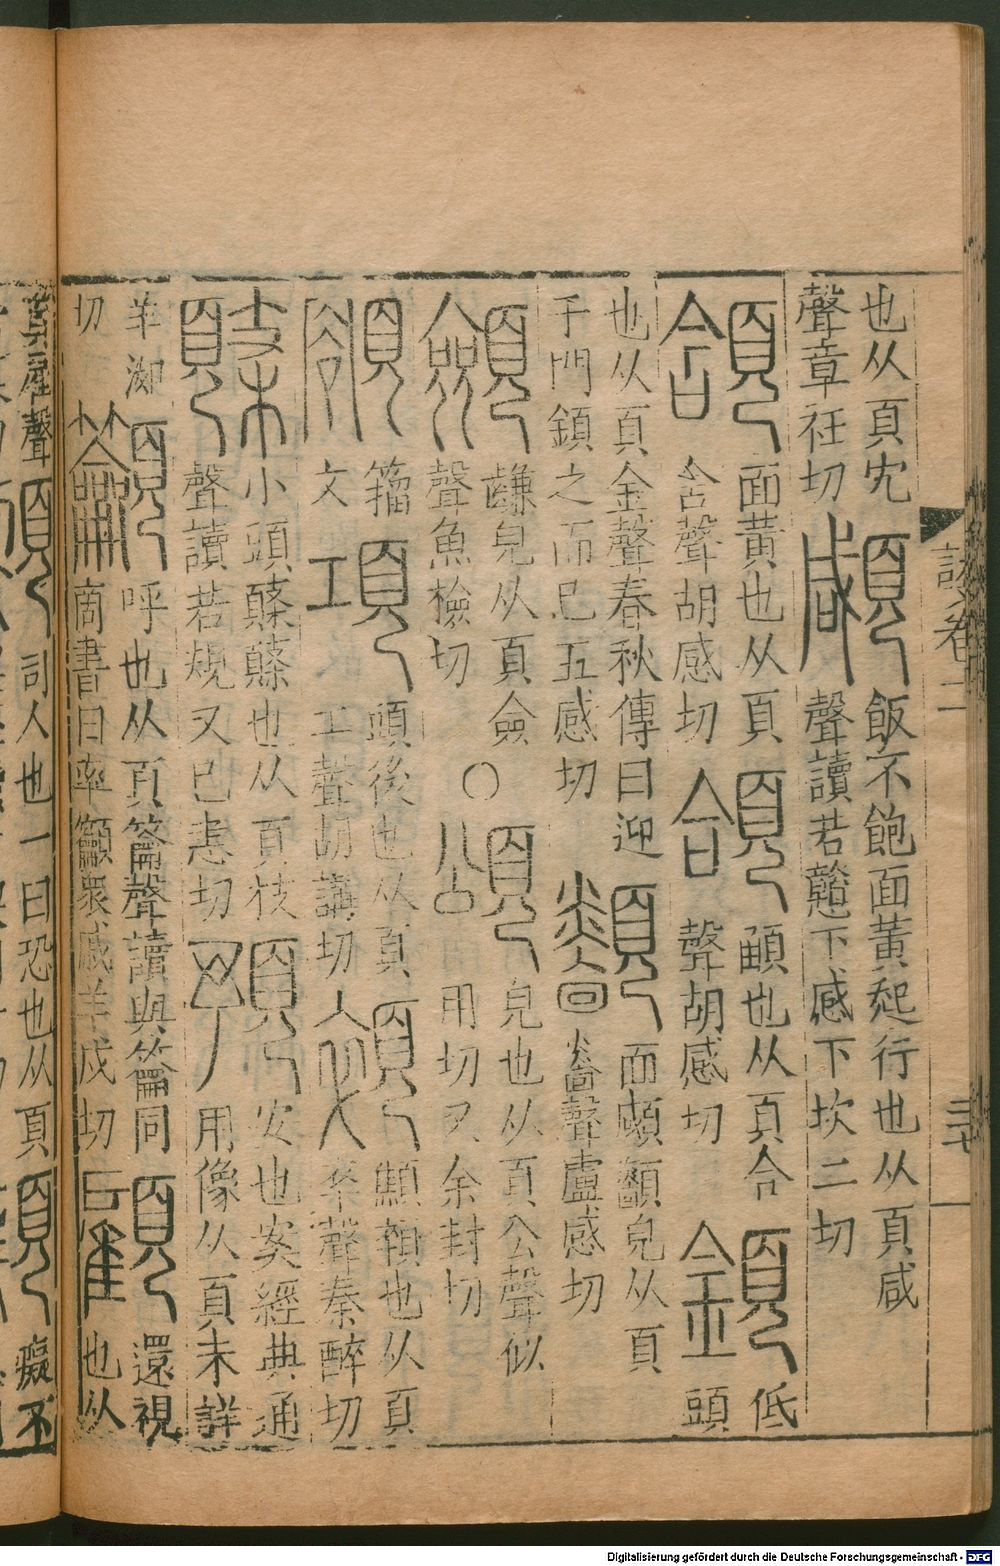 也从頁冘
聲章衽切
顑
飯不飽面黃起行也从頁咸
聲讀若戇下感下坎二切
頷
面黃也从頁
含聲胡感切
頜
顄也从頁合
聲胡感切
顉
低
頭
也从頁金聲春秋傳曰迎
于門鎖之而已五感切
顲
面顑顲皃从頁
𤐫聲盧感切
顩
皃从頁僉
聲魚檢切
○
頌
皃也从頁公聲似
用切又余封切
額
籀
文
項
頭後也从頁
工聲胡講切
顇
顦顇也从頁
卒聲秦醉切
小頭也从頁枝
聲讀若規又已恚切
預
安也案經典通
用像从頁未詳
羊洳
切
籲
呼也从頁籥聲讀與籥同
商書曰率籲眾戚羊戍切
顧
還視
也从
頁雇聲
司人也一曰恐也从頁
癡不
卷二
Digitalisierung gefördert durch die Deutsche Forschungsgemeinschaft - DFG